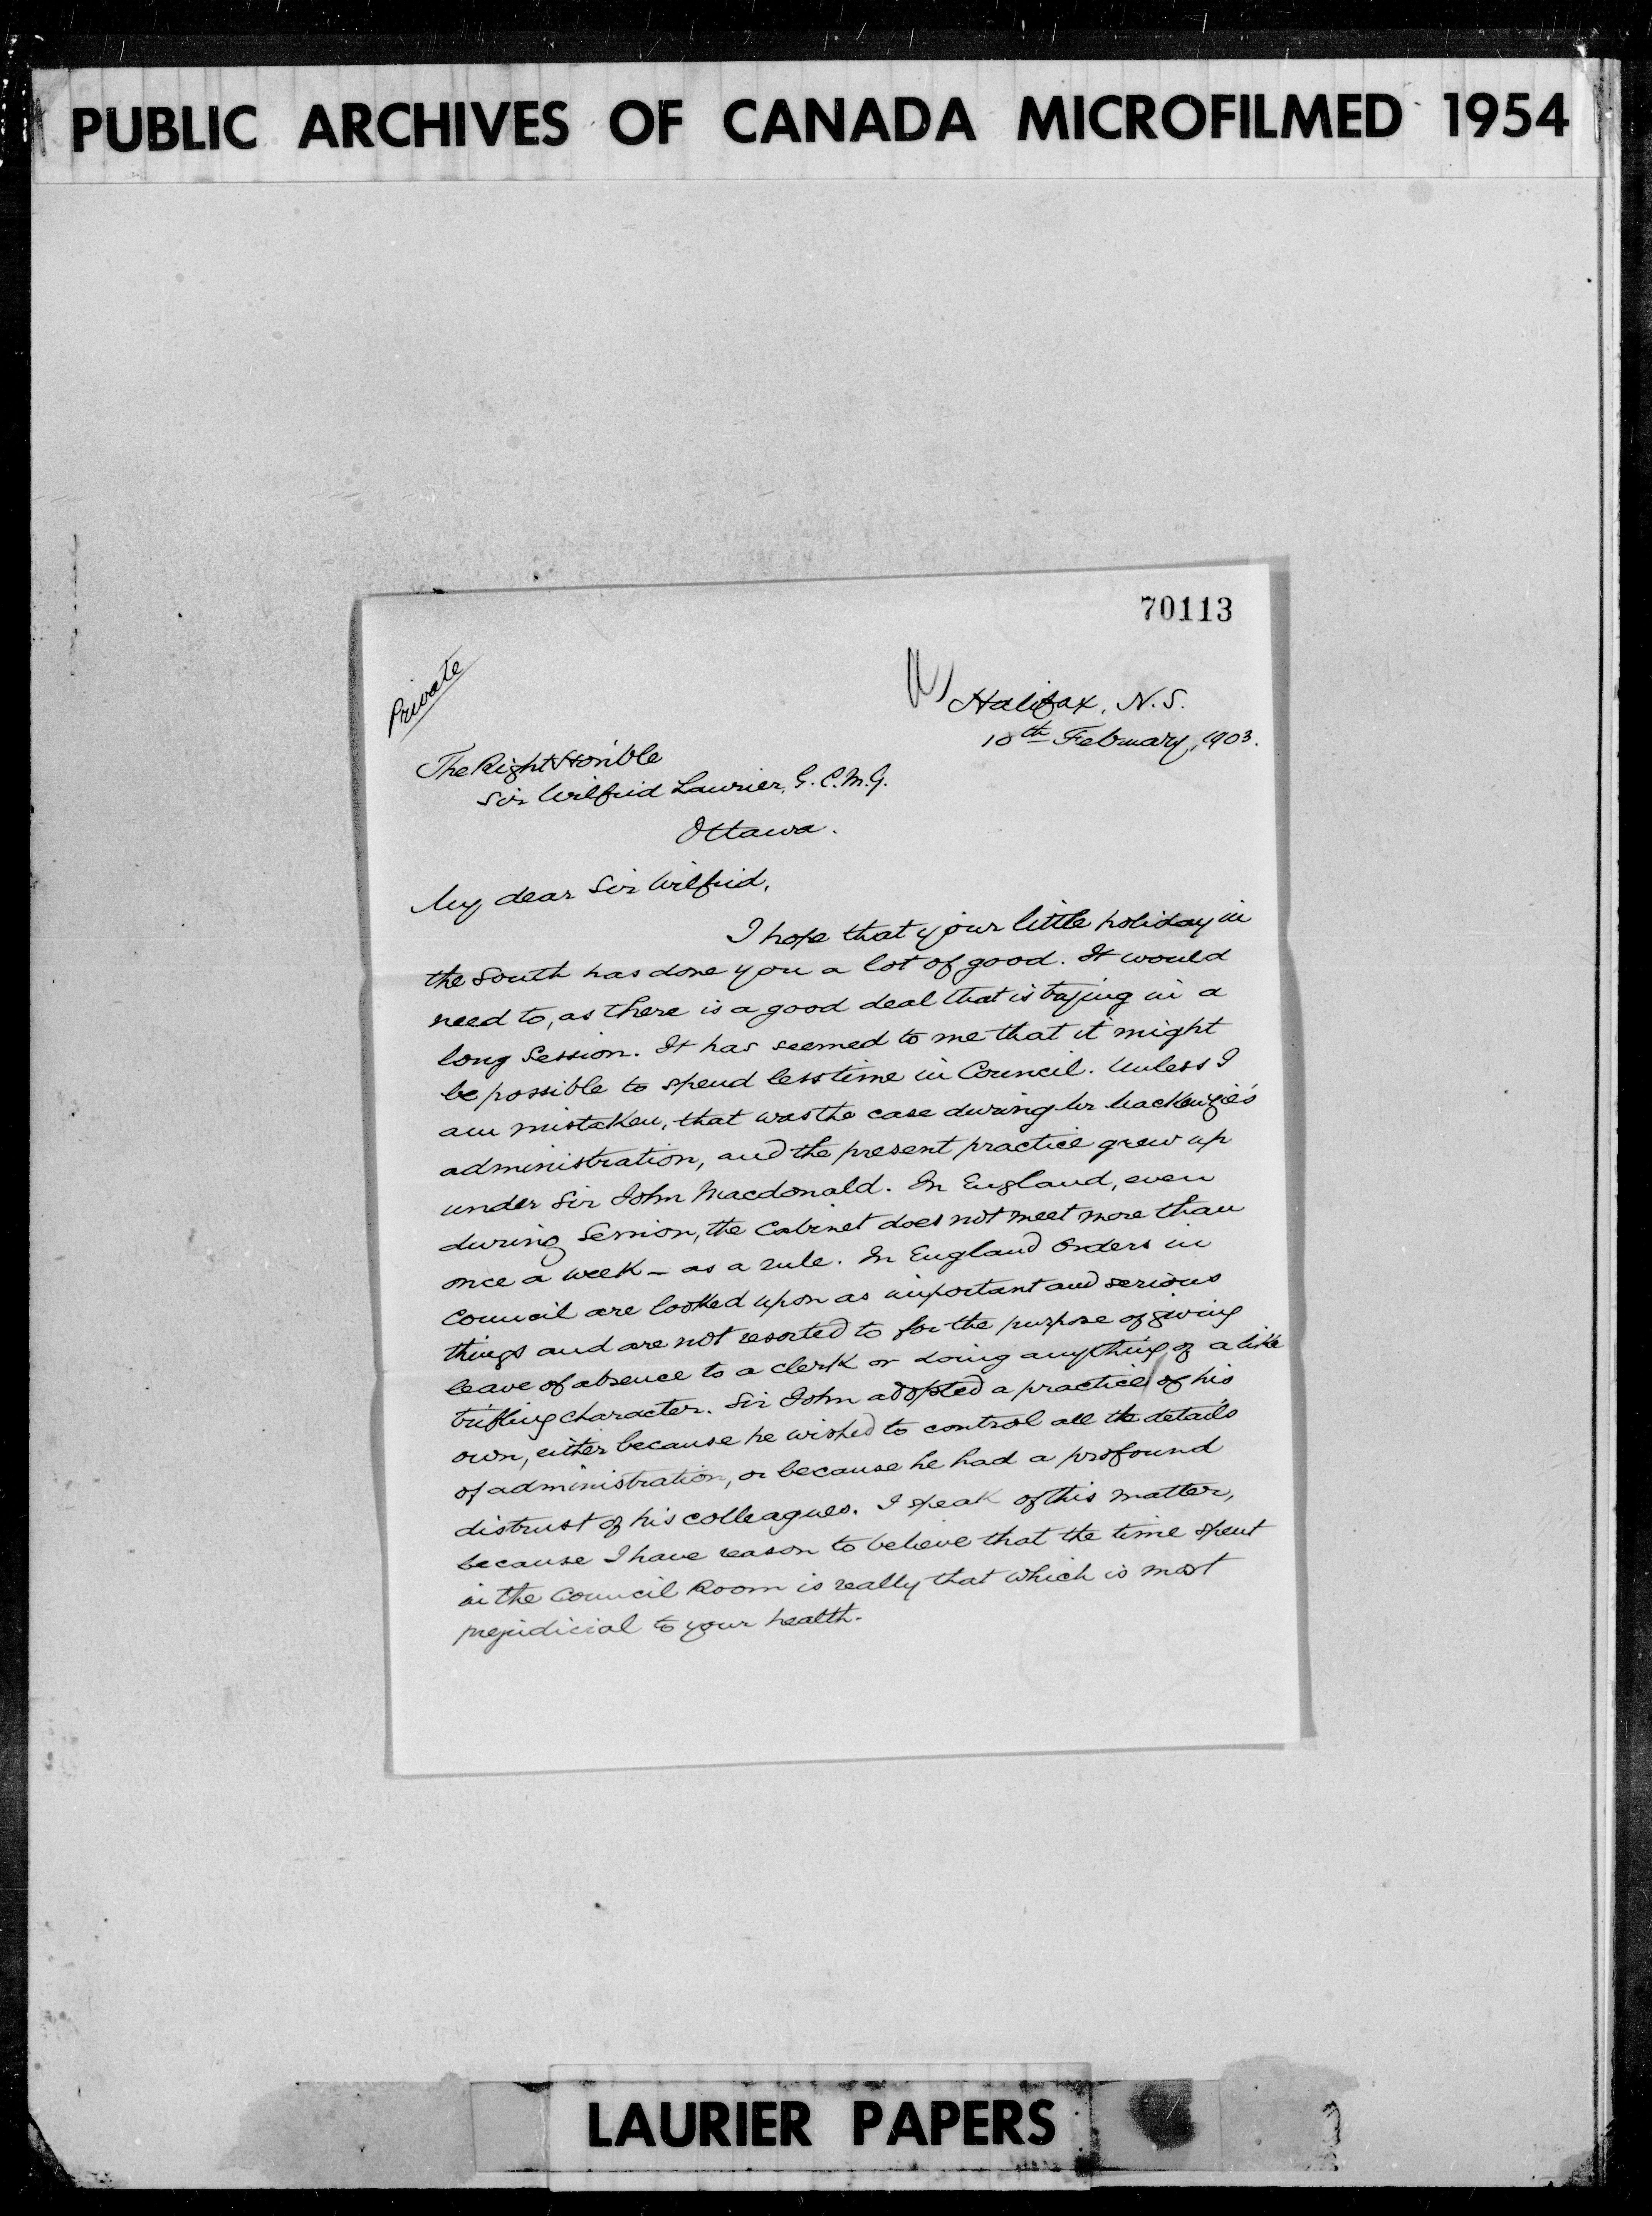 PUBLIC ARCHIVES OF CANADA MICROFILMED 1954
70113
Private
Halifax, N.S.
10th February, 1903.
The Right Hon'ble
Sir Wilfrid Laurier, G.C.M.G.
Ottawa.
My dear Sir Wilfrid,
I hope that your little holiday in
the South has done you a lot of good. It would
need to, as there is a good deal that is trying in a
long Session. It has seemed to me that it might
be possible to spend less time in Council. Unless I
am mistaken, that was the case during Mr Mackenzie's
administration, and the present practice grew up
under Sir John Macdonald. In England, even
during Session, the Cabinet does not meet more than
once a week – as a rule. In England Orders in
Council are looked upon as important and serious
things and are not resorted to for the purpose of giving
leave of absence to a clerk or doing anything of a like
trifling character. Sir John adopted a practice of his
own, either because he wished to control all the details
of administration, or because he had a profound
distrust of his colleagues. I speak of this matter,
because I have reason to believe that the time spent
in the Council Room is really that which is most
prejudicial to your health.
LAURIER PAPERS